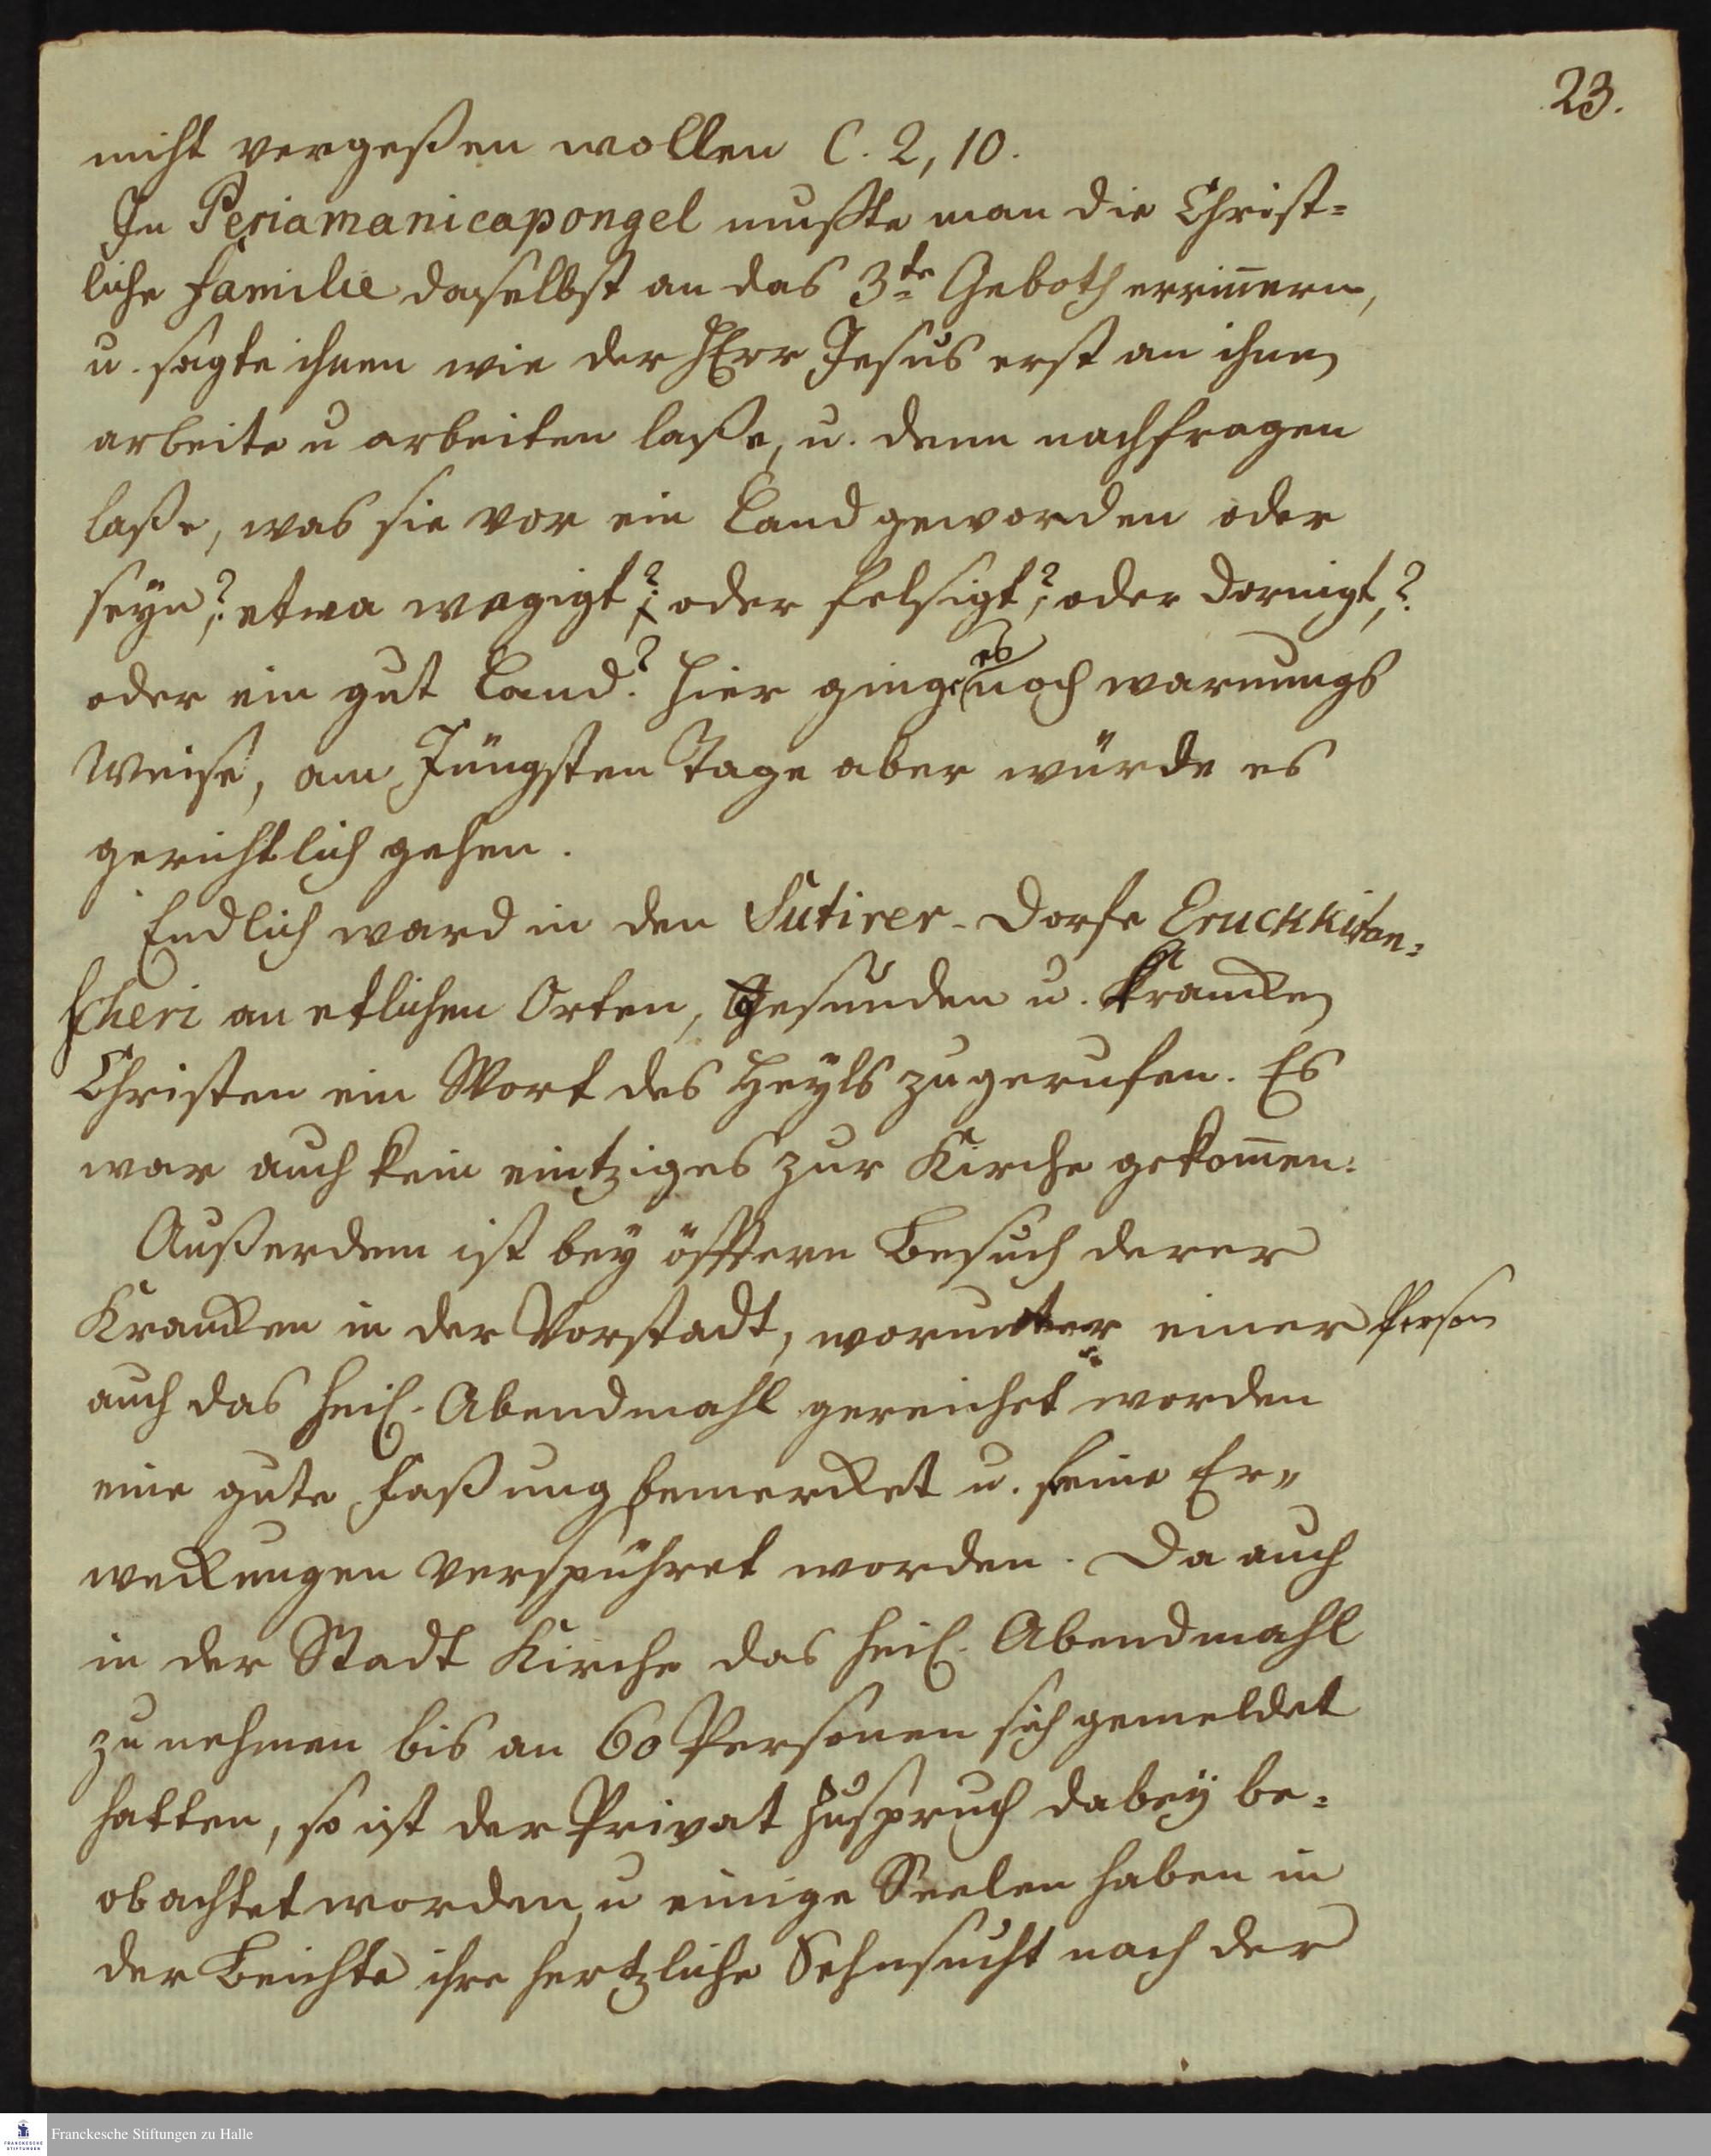 23.
nicht vergeßen wollen C. 2, 10.
In Periamanicapongel mußte man die Christ=
liche Familie daselbst an das 3te Geboth erin̄ern,
u. sagte ihnen wie der HErr Jesus erst an ihnen
arbeite u arbeiten laße, u. denn nachfragen
laße, was sie vor ein Land geworden oder
seyn? etwa wegigt? oder felsigt? oder dornigt?
oder ein gut Land? Hier ginge es noch warnungs
Weise, am Jüngsten Tage aber würde es
gerichtlich gehen.
Endlich ward in den Sutirer-Dorfe Eruckkitan=
cheri an etlichen Orten, Gesunden u. Krancken
Christen ein Wort des Heyls zugerufen. Es
war auch kein eintziges zur Kirche gekom̄en.
Außerdem ist bey öfftern Besuch derer
Krancken in der Vorstadt, worunter einer Person
auch das heil. Abendmahl gereichet worden
eine gute Faßung bemercket u. feine Er=
weckungen verspühret worden. Da auch
in der Stadt Kirche das heil. Abendmahl
zu nehmen bis an 60 Personen sich gemeldet
hatten, so ist der Privat Zuspruch dabey be=
obachtet worden, u einige Seelen haben in
der Beichte ihre hertzliche Sehnsucht nach der
FRANCKESCHE STIFTUNGEN
Franckesche Stiftungen zu Halle